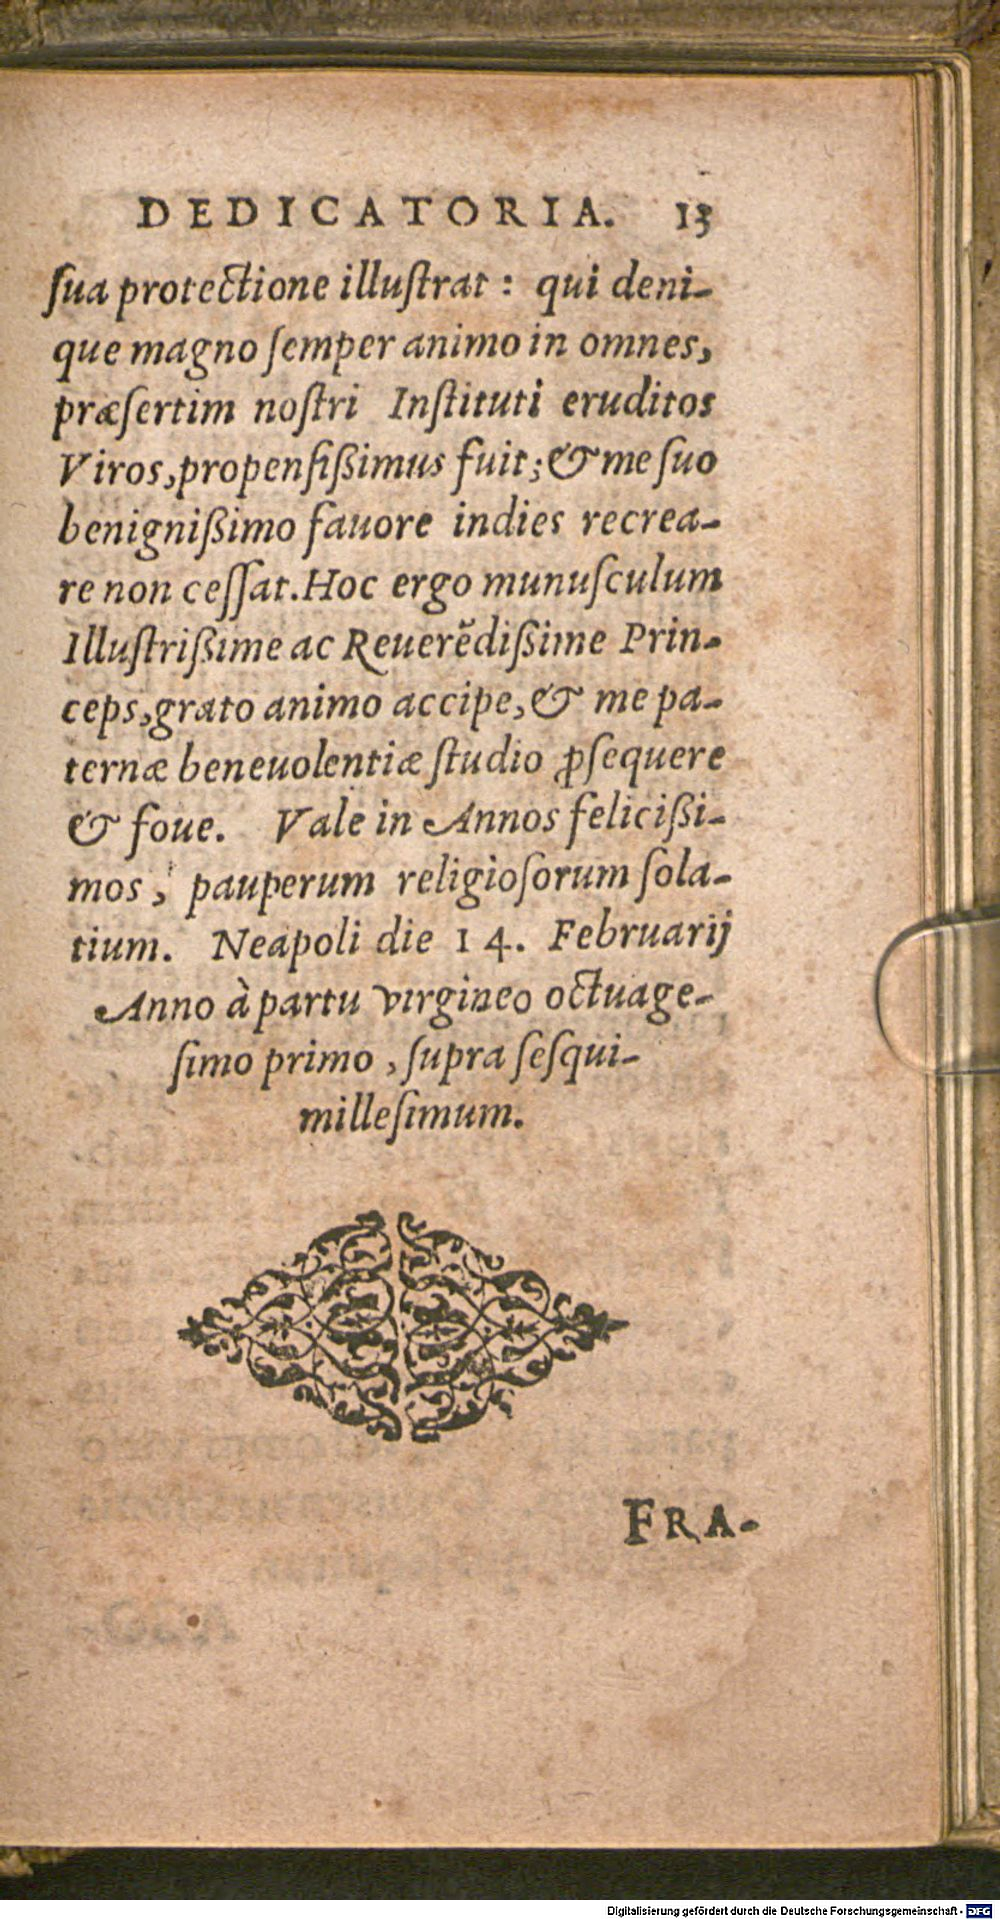 DEDICATORIA. 13
ſua protectione illuſtrat : qui deni-
que magno ſemper animo in omnes,
præſertim noſtri Inſtituti eruditos
Viros, propenſißimus fuit; & me ſuo
benignißimo fauore indies recrea-
re non ceſſat. Hoc ergo munuſculum
Illuſtrißime ac Reuerēdißime Prin-
ceps, grato animo accipe, & me pa-
ternæ beneuolentiæ ſtudio ꝓſequere
& foue. Vale in Annos felicißi-
mos, pauperum religioſorum ſola-
tium. Neapoli die 14. Februarij
Anno à partu virgineo octuage-
ſimo primo, ſupra ſeſqui-
milleſimum.
FRA-
Digitalisierung gefördert durch die Deutsche Forschungsgemeinschaft - DFG